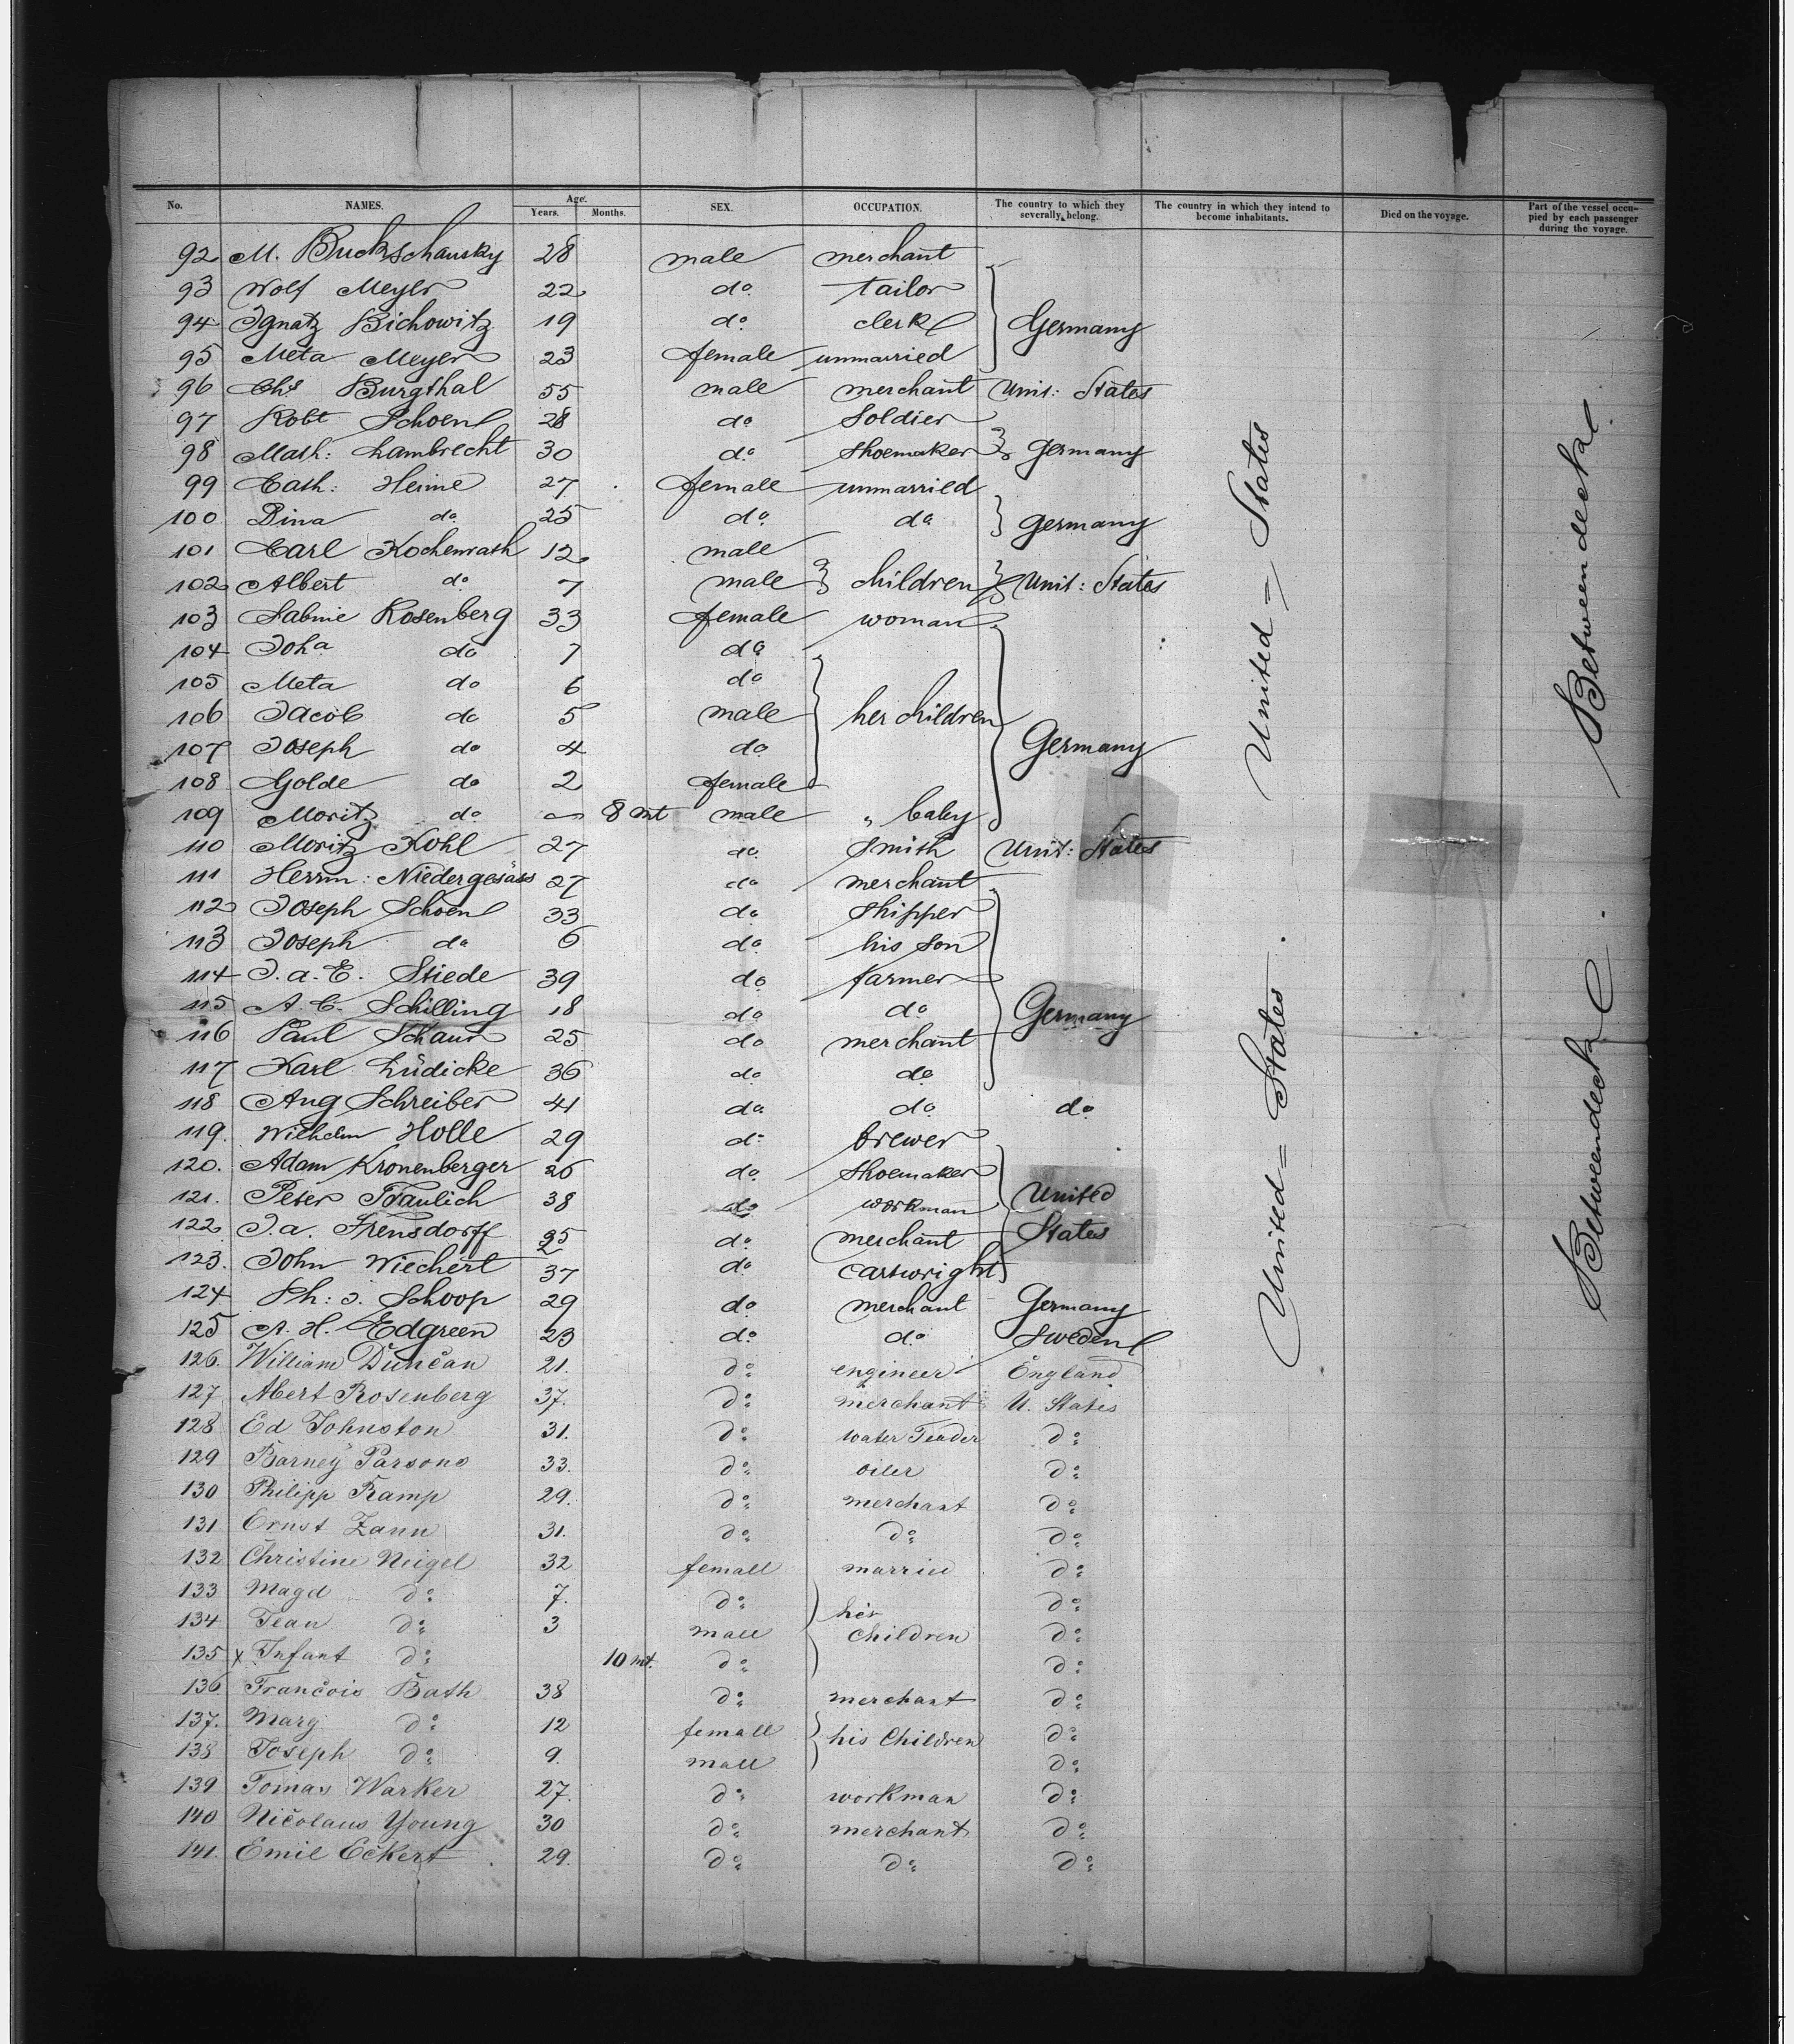 No. NAMES. Age. Years. Months. SEX. OCCUPATION. The country to which they severally belong. The country in which they intend to become inhabitants. Died on the voyage. Part of the vessel occupied by each passenger during the voyage.
92 M. Buckschausky 28 male merchant
93 Wolf Meyer 22 do tailor
94 Ignatz Bichowitz 19 do clerk Germany
95 Meta Meyer 23 female unmarried
96 Chs Burgthal 55 male merchant Unit: States
97 Robt Schoen 28 do Soldier
98 Math: Lambrecht 30 do Shoemaker Germany
99 Cath: Heine 27 female unmarried
100 Dina do 25 do do Germany
101 Carl Kochenrath 12 male
102 Albert do 7 male children Unit: States
103 Sabine Rosenberg 33 female woman
104 Joha do 7 do
105 Meta do 6 do
106 Jacob do 5 male her children
107 Joseph do 4 do Germany
108 Golde do 2 female
109 Moritz do — 8 mt male " baby
110 Moritz Kohl 27 do Smith Unit: States
111 Herrm: Niedergesäss 27 do merchant
112 Joseph Schoen 33 do Shipper
113 Joseph do 6 do his son
114 J. a. E. Stiede 39 do farmer
115 A. C. Schilling 18 do do Germany
116 Paul Schaur 25 do merchant
117 Karl Lüdicke 36 do do
118 Aug Schreiber 41 do do do
119. Wilhelm Holle 29 do brewer
120. Adam Kronenberger 26 do Shoemaker
121. Peter Fraulich 38 do workman United
122 J. a. Frensdorff do merchant States
123. John Wiechert 37 do cartwright
124 Ph: J. Schoop 29 do merchant Germany
125 A. H. Edgreen 23 do do Sweden
126. William Duncan 21. do engineer England
127 Abert Rosenberg 37. do merchant U. States
128 Ed Johnston 31. do water Tender do
129 Barney Parsons 33. do oiler do
130 Philipp Kamp 29. do merchant do
131 Ernst Zann 31. do do do
132 Christine Neigel 32 female married do
133 Magd do 7. do his do
134 Jean do 3 male children do
135 x Infant do 10 mt. do do
136 François Bath 38 do merchant do
137. Marg do 12 female his Children do
138 Joseph do 9. male do
139 Tomas Warker 27. do workman do
140 Nicolaus Young 30 do merchant do
141. Emil Eckert 29. do do do
United = States
United = States
Between deck
Betweendeck